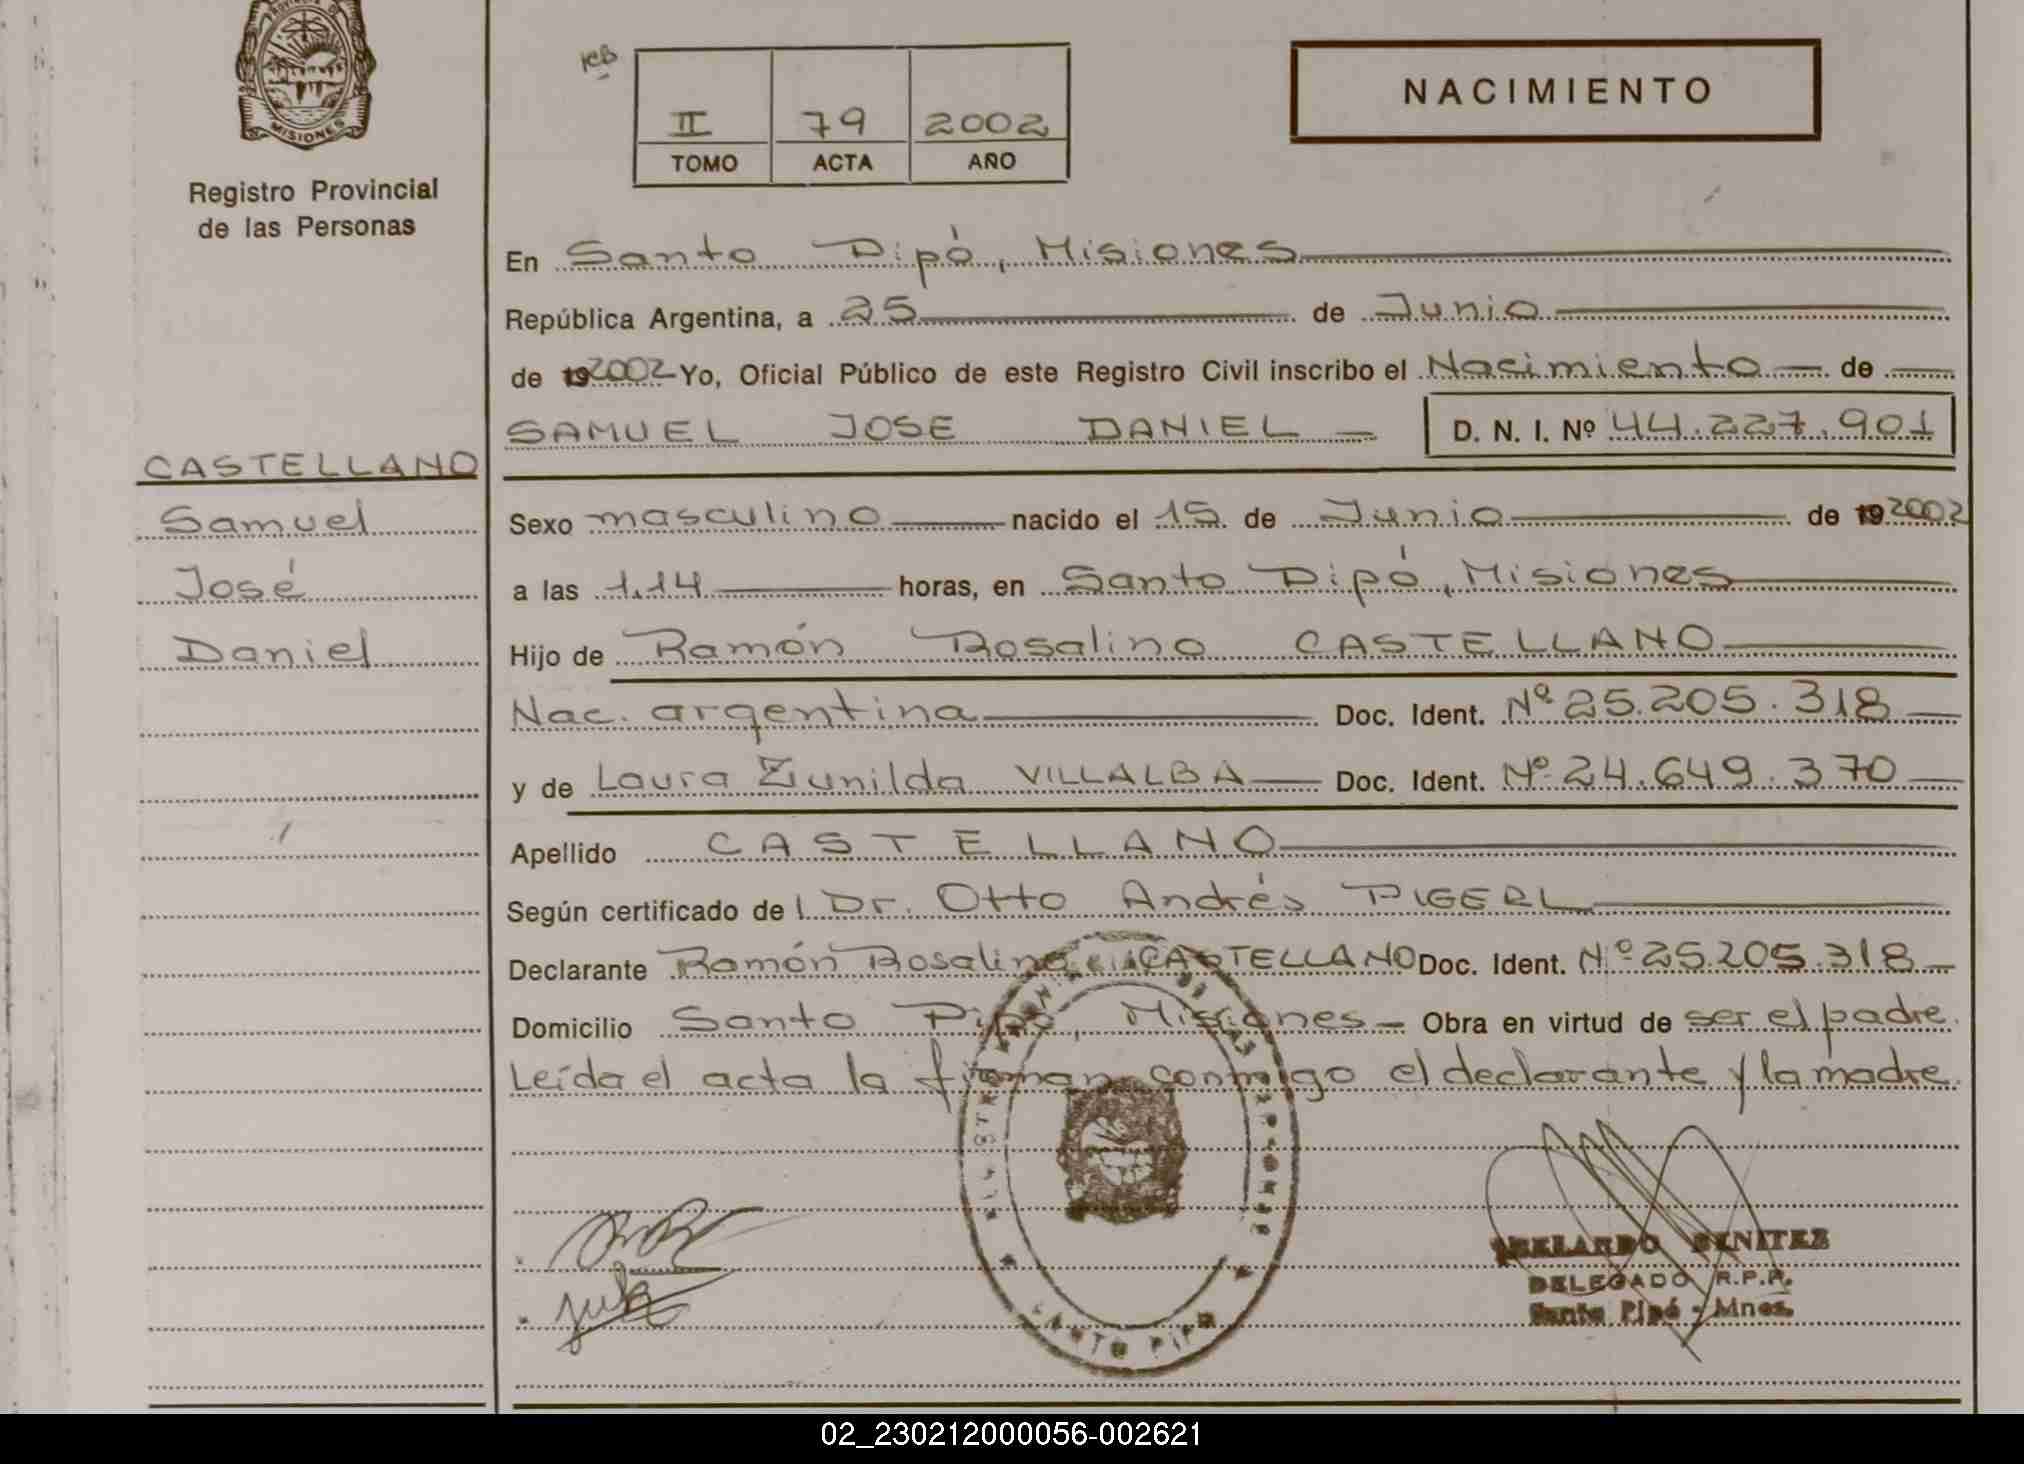 PROVINCIA DE
MISIONES
Registro Provincial
de las Personas
CASTELLANO
Samuel
José
Daniel
II 79 2002
TOMO ACTA AÑO
NACIMIENTO
En Santo Pipó, Misiones
República Argentina, a 25 de Junio
de 19 2002 Yo, Oficial Público de este Registro Civil inscribo el Nacimiento de
SAMUEL JOSE DANIEL D. N. I. Nº 44.227.901
Sexo masculino nacido el 15 de Junio de 19 2002
a las 1.14 horas, en Santo Pipó, Misiones
Hijo de Ramón Rosalino CASTELLANO
Nac. argentina Doc. Ident. Nº 25.205.318
y de Laura Zunilda VILLALBA Doc. Ident. Nº 24.649.370
Apellido CASTELLANO
Según certificado de l Dr. Otto Andrés PIGERL
Declarante Ramón Rosalino CASTELLANO Doc. Ident. Nº 25.205.318
Domicilio Santo Pipó, Misiones Obra en virtud de ser el padre.
Leída el acta la firman conmigo el declarante y la madre.
ABELARDO BENITEZ
DELEGADO R.P.P.
Santo Pipó - Mnes.
SANTO PIPO
02_230212000056-002621